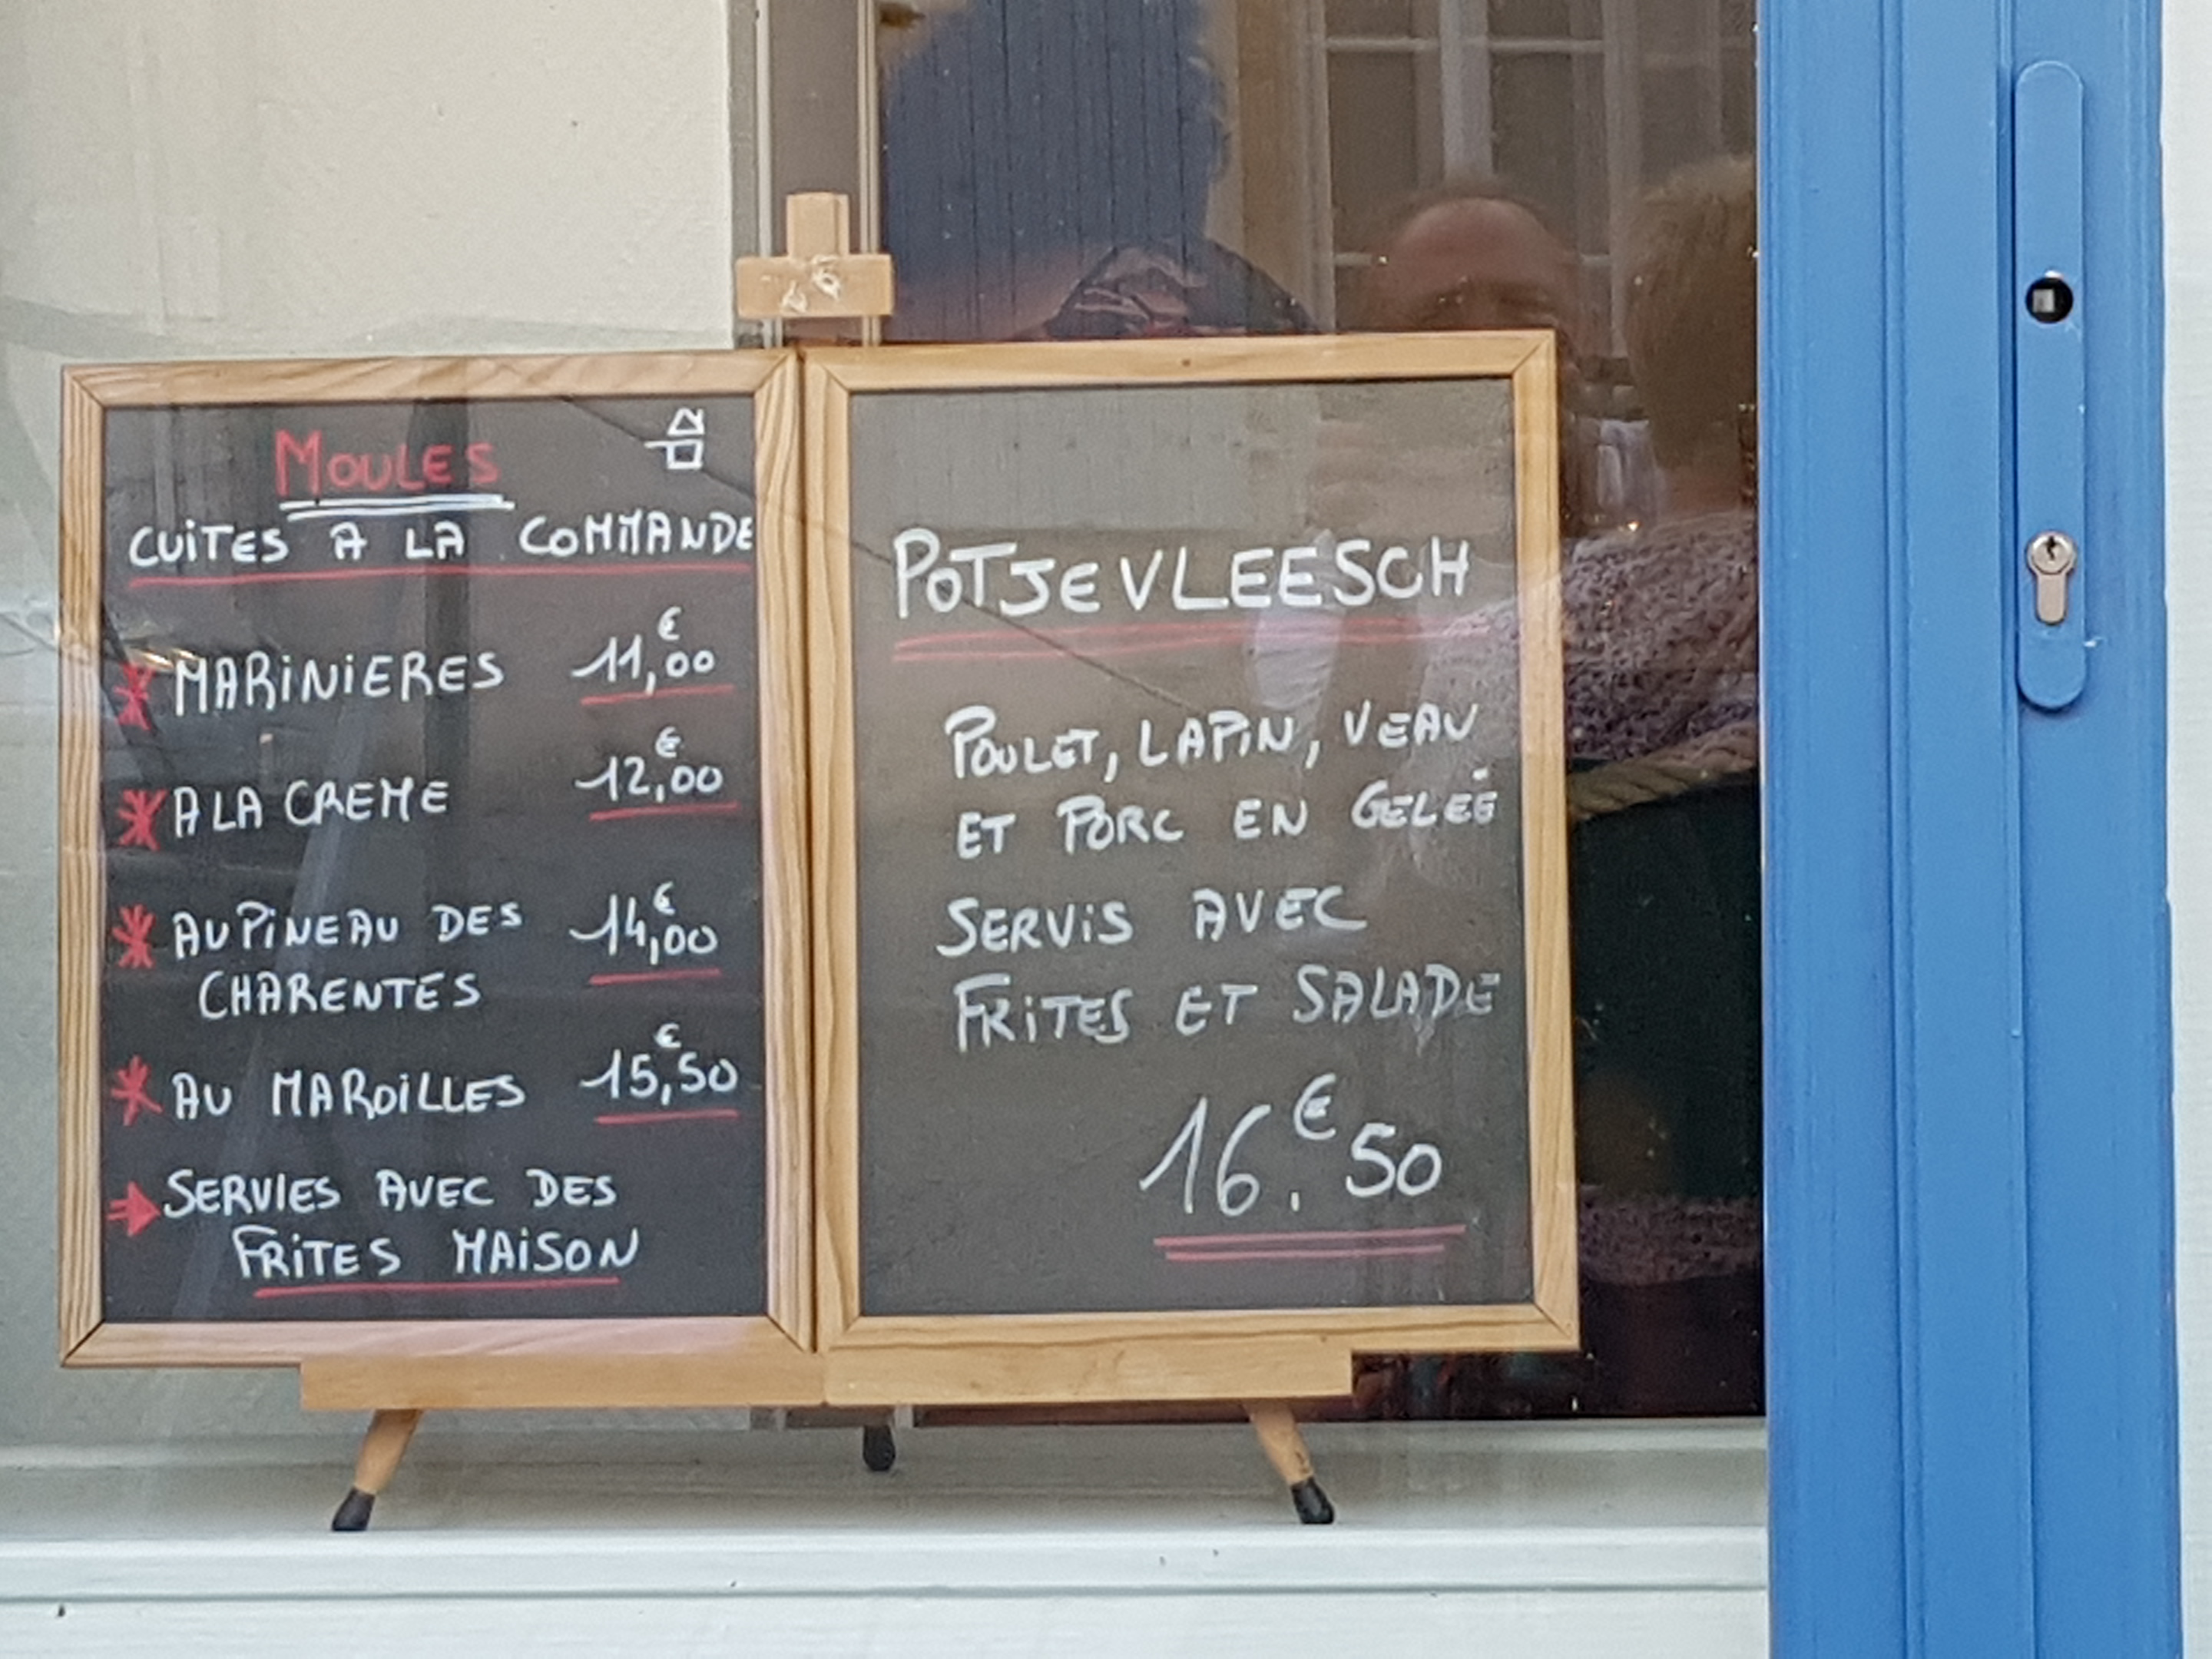 MOULES
CUITES A LA COMMANDE
MARINIERES 11,00 €
A LA CREME 12,00 €
AU PINEAU DES 14,00 €
CHARENTES
AU MAROILLES 15,50 €
SERVIES AVEC DES
FRITES MAISON
POTJEVLEESCH
POULET, LAPIN, VEAU
ET PORC EN GELEÉ
SERVIS AVEC
FRITES ET SALADE
16.€50